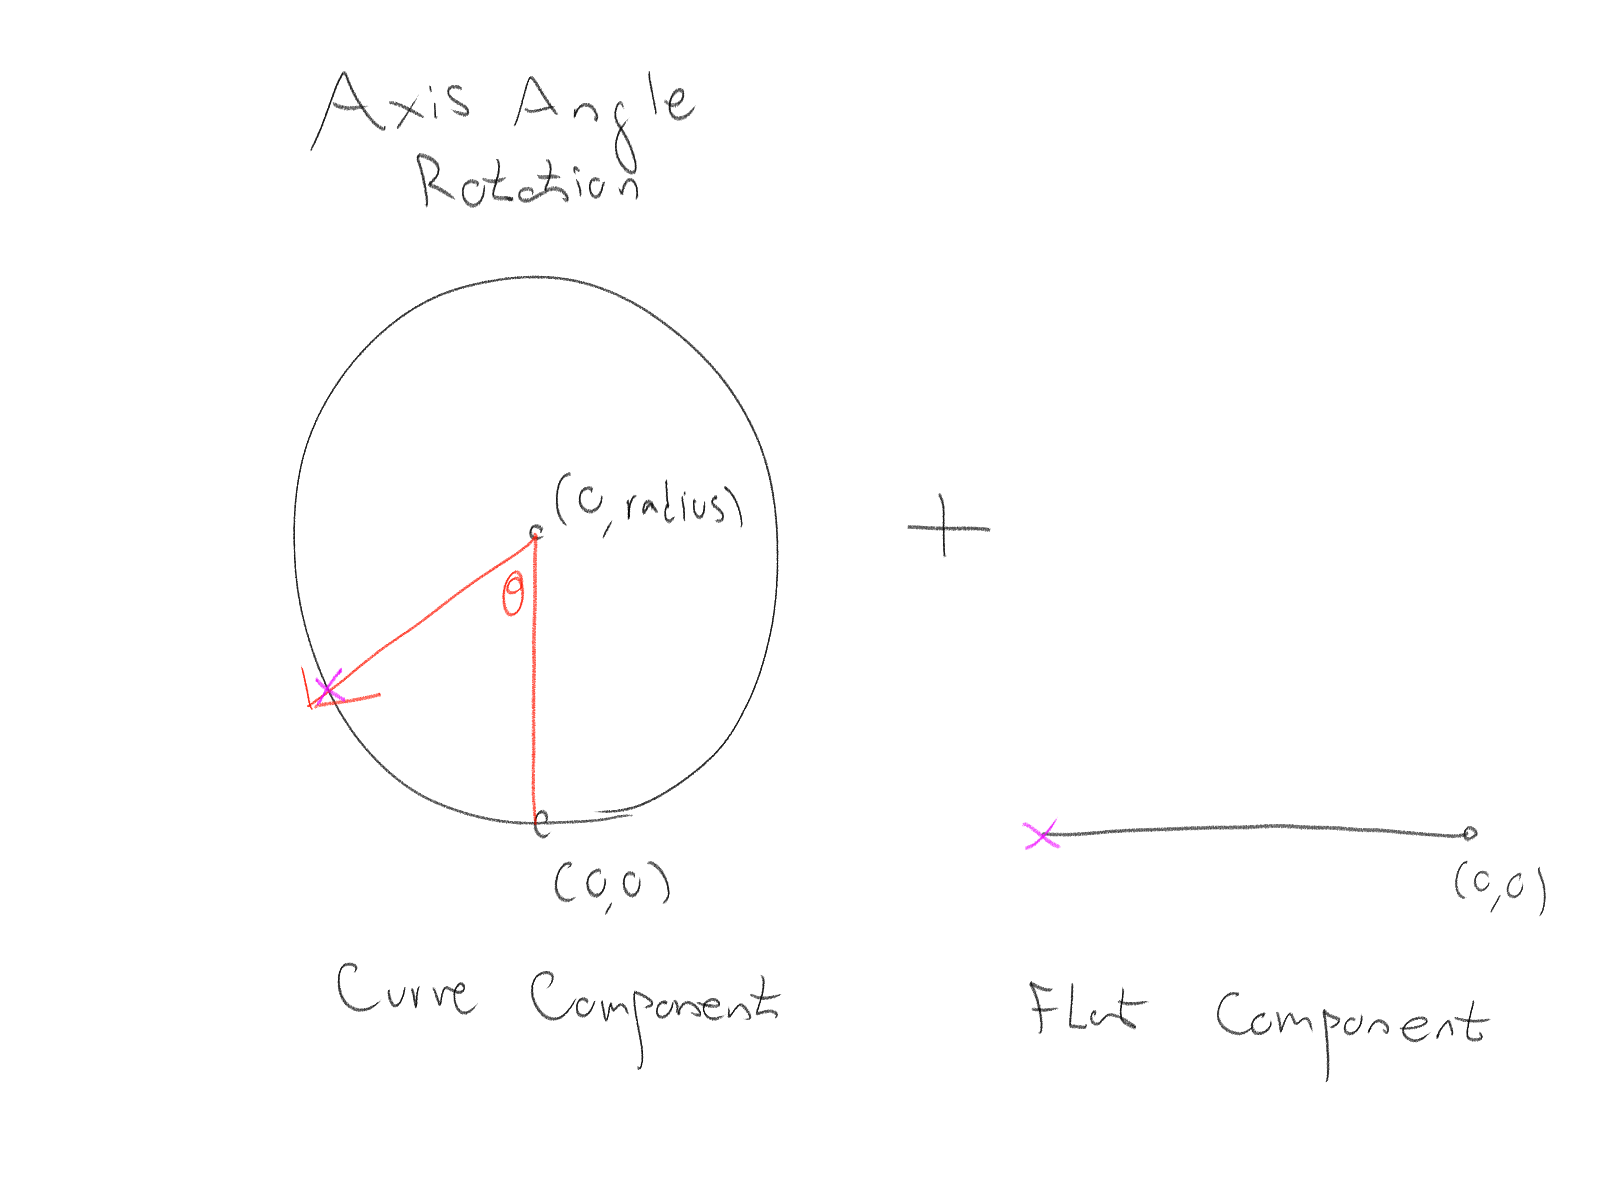 Axis Angle
Rotation
(0, radius)
+
θ
(0,0)
(0,0)
Curve Component
Flat Component